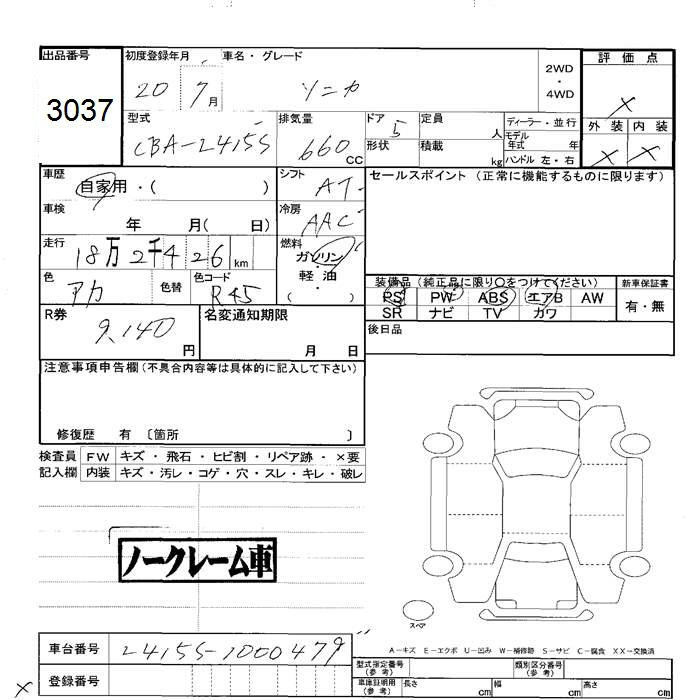 出品番号
3037
初度登録年月
20 7月
車名・グレード
ソニカ
2WD
・
4WD
評価点
×
外装 内装
× ×
型式
CBA-L415S
排気量
660 CC
ドア 5
定員 人
形状
積載 kg
ディーラー・並行
モデル年式 年
ハンドル 左・右
車歴
自家用・( )
シフト
AT
セールスポイント (正常に機能するものに限ります)
車検
年 月( 日)
冷房
AAC
走行
18万2千426km
燃料
ガソリン
・
軽油
( )
色
アカ
色替
色コード
R45
装備品(純正品に限り○をつけてください)
PS PW ABS エアB AW
SR ナビ TV カワ
新車保証書
有・無
R券
9,140
円
名変通知期限
月 日
後日品
注意事項申告欄(不具合内容等は具体的に記入して下さい)
修復歴 有 〔箇所 〕
検査員 FW キズ・飛石・ヒビ割・リペア跡・×要
記入欄 内装 キズ・汚レ・コゲ・穴・スレ・キレ・破レ
ノークレーム車
スペア
A-キズ E-エクボ U-凹み W-補修跡 S-サビ C-腐食 XX-交換済
車台番号
L415S-1000479
登録番号
×
型式指定番号
(参考)
類別区分番号
(参考)
車庫証明用
(参考)
長さ cm
幅 cm
高さ cm